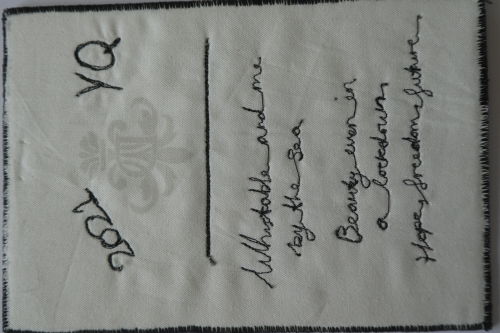 2021 YQ
Whitstable and me
by the sea
Beauty even in
a lockdown
Hope, freedom, future